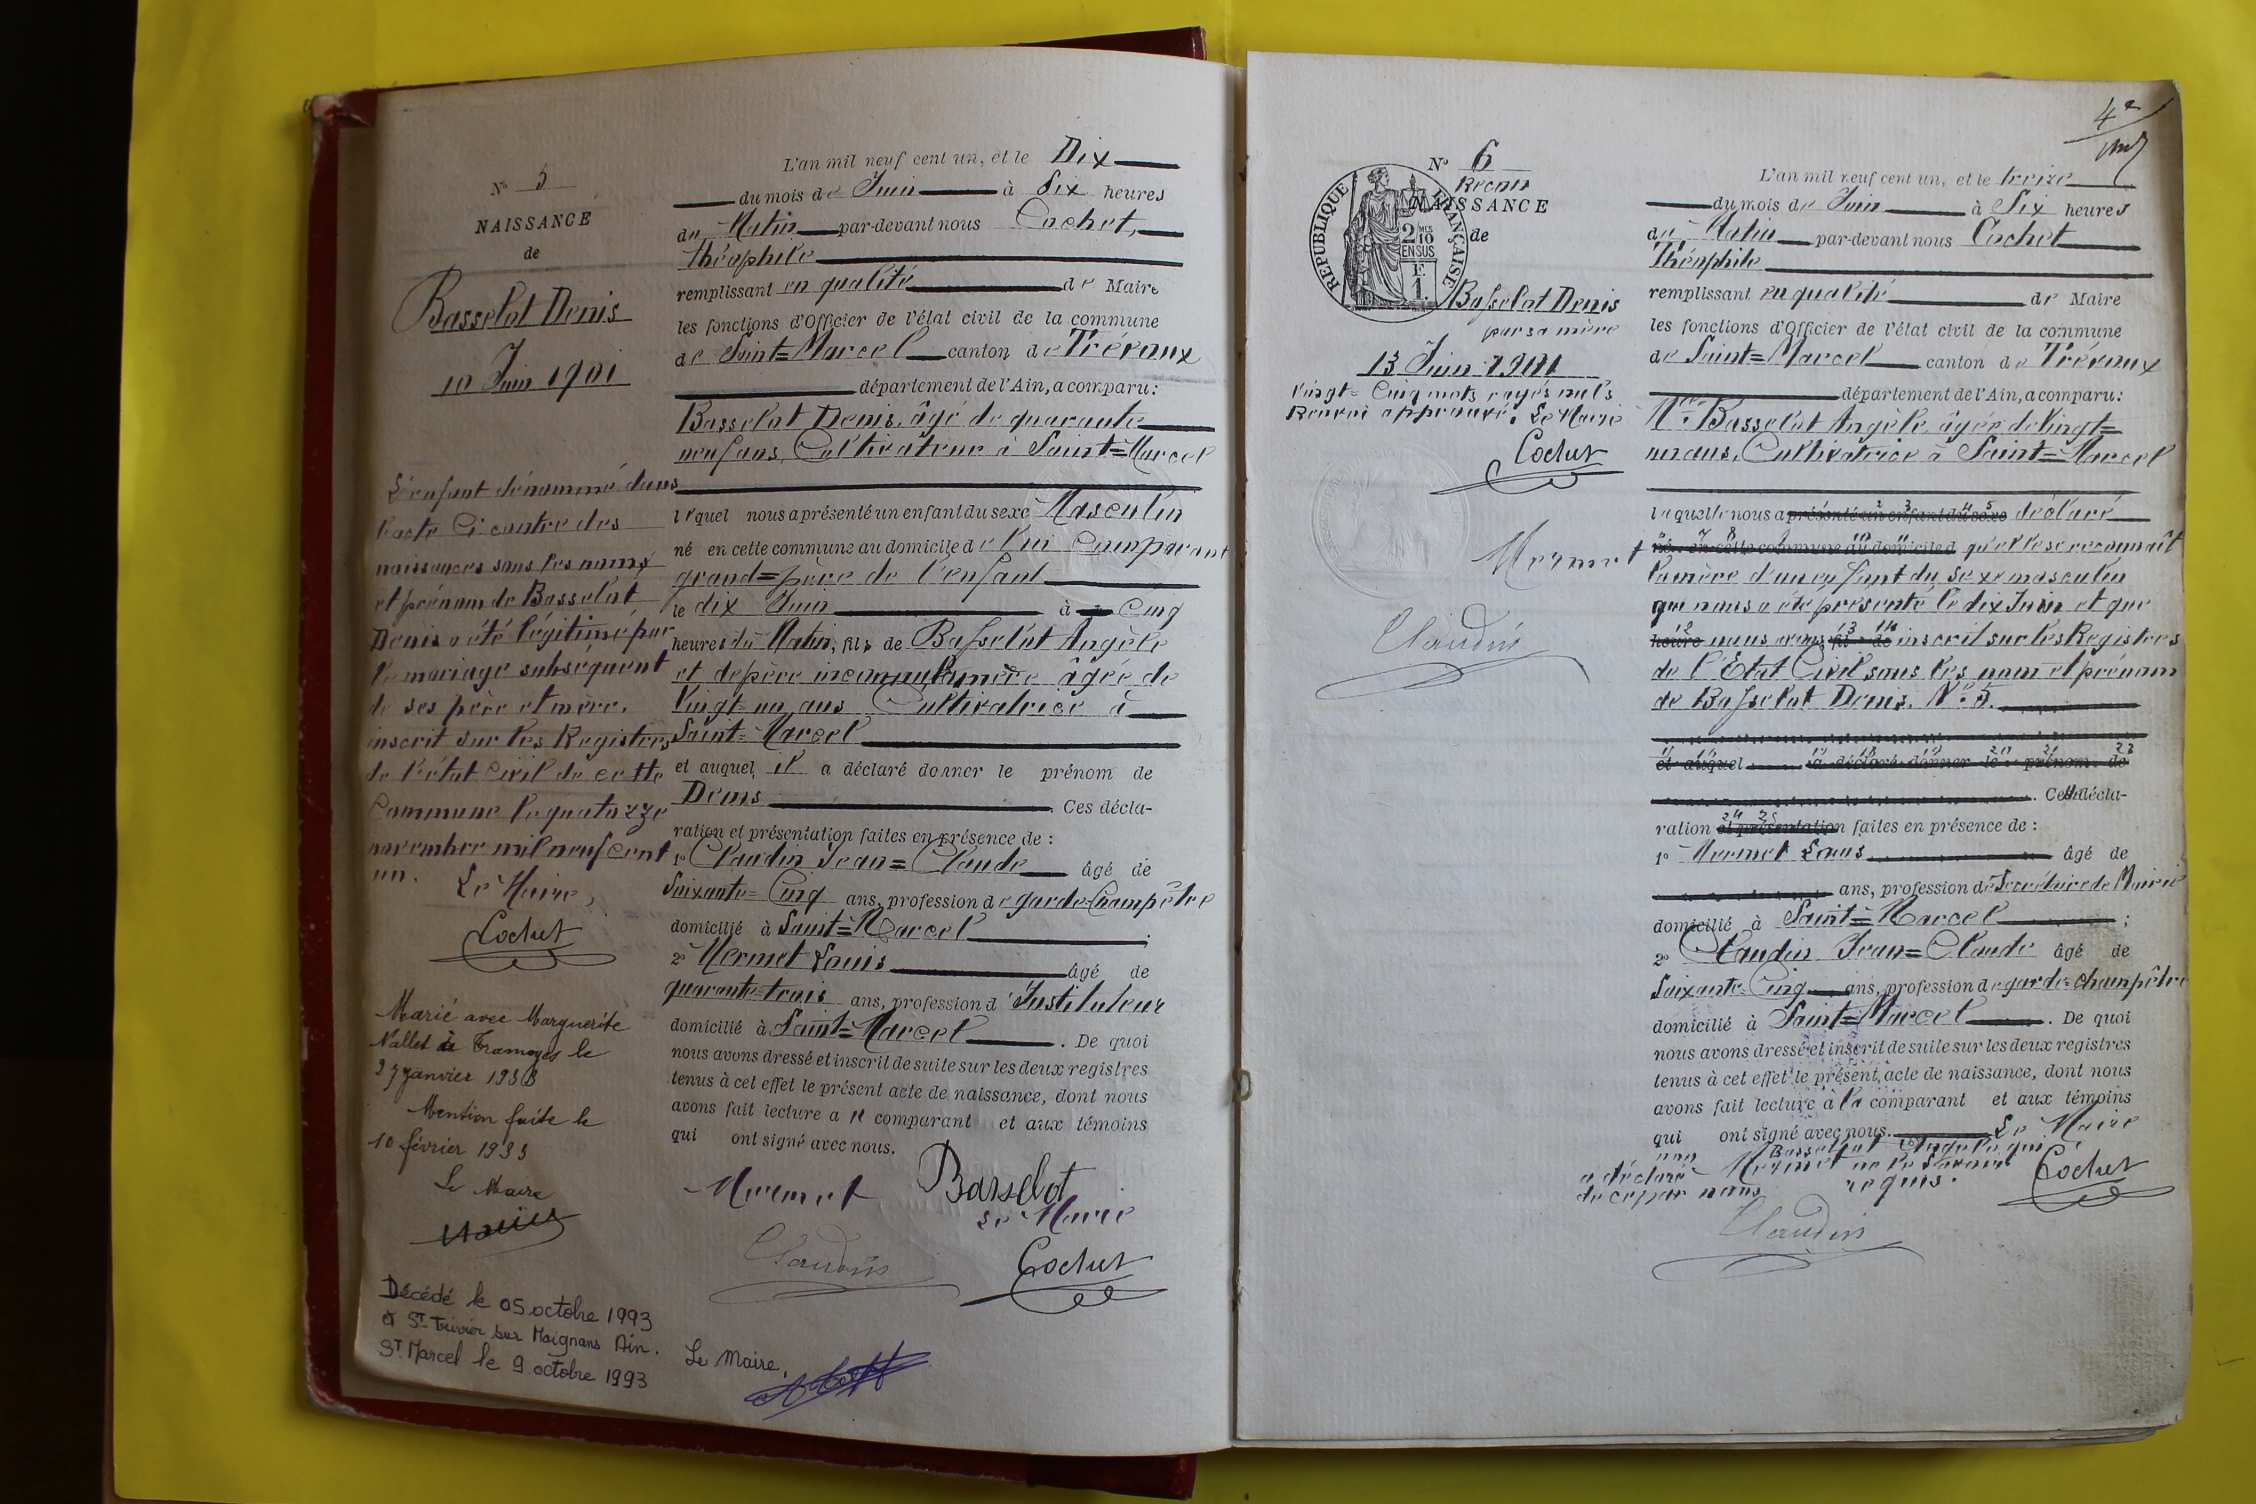 N° 5
NAISSANCE
de
Basselot Denis
10 Juin 1901
L'enfant dénommé dans
l'acte Ci contre des
naissances sous les noms
et prénom de Basselot
Denis a été légitimé par
le mariage subséquent
de ses père et mère.
inscrit sur les Registres
de l'état civil de cette
Commune le quatorze
novembre mil neuf cent
un.
Le Maire,
Cochet
Marié avec Marguerite
Vallet à Tramoyes le
27 janvier 1933
Mention faite le
10 février 1933
Le Maire
Décédé le 05 octobre 1993
à St Trivier sur Moignans Ain.
St Marcel le 9 octobre 1993
Le Maire,
L'an mil neuf cent un, et le Dix
du mois de Juin à Six heures
du Matin par-devant nous Cochet,
Théophile
remplissant en qualité de Maire
les fonctions d'Officier de l'état civil de la commune
de Saint=Marcel canton de Trévoux
département de l'Ain, a comparu:
Basselot Denis, âgé de quarante
neuf ans, Cultivateur à Saint=Marcel
lequel nous a présenté un enfant du sexe Masculin
né en cette commune au domicile de lui Comparant
grand=père de l'enfant
le dix Juin à Cinq
heures du Matin, fils de Basselot Angèle
et de père inconnu, la mère âgée de
Vingt-un ans Cultivatrice à
Saint=Marcel
et auquel il a déclaré donner le prénom de
Denis. Ces décla-
ration et présentation faites en présence de :
1° Claudin Jean=Claude âgé de
Soixante=Cinq ans, profession de garde-Champêtre
domicilié à Saint=Marcel ;
2° Mermet Louis âgé de
quarante-trois ans, profession d'Instituteur
domicilié à Saint=Marcel. De quoi
nous avons dressé et inscrit de suite sur les deux registres
tenus à cet effet le présent acte de naissance, dont nous
avons fait lecture a u comparant et aux témoins
qui ont signé avec nous.
Mermet Basselot
Le Maire
Claudin Cochet
4e
N° 6
Recon
NAISSANCE
de
REPUBLIQUE FRANÇAISE
2 MES
10
EN SUS
F.
1.
Basselot Denis
par sa mère
13 Juin 1901
Vingt-Cinq mots rayés nuls.
Renvoi approuvé. Le Maire
Cochet
Mermet
Claudin
L'an mil neuf cent un, et le treize
du mois de Juin à Six heures
du Matin par-devant nous Cochet
Théophile
remplissant en qualité de Maire
les fonctions d'Officier de l'état civil de la commune
de Saint=Marcel canton de Trévoux
département de l'Ain, a comparu:
Mlle Basselot Angèle, âgée de Vingt=
un ans, Cultivatrice à Saint=Marcel
laquelle nous a présenté un enfant du sexe déclaré
né en cette commune au domicile d qu'elle se reconnaît
la mère d'un enfant du sexe masculin
qui nous a été présenté le dix Juin et que
heure nous avons fil de inscrit sur les Registres
de l'Etat Civil sous les nom et prénom
de Basselot Denis. N° 5.
et auquel a déclaré donner le prénom de
. Cette décla-
ration et présentation faites en présence de :
1° Mermet Louis âgé de
ans, profession de Secrétaire de Mairie
domicilié à Saint=Marcel ;
2° Claudin Jean=Claude âgé de
Soixante-Cinq ans, profession de garde-champêtre
domicilié à Saint=Marcel. De quoi
nous avons dressé et inscrit de suite sur les deux registres
tenus à cet effet le présent acte de naissance, dont nous
avons fait lecture à la comparant et aux témoins
qui ont signé avec nous. Le Maire
non Basselot Angèle qui
a déclaré Mermet ne le savoir
de ce par nous requis. Cochet
Claudin